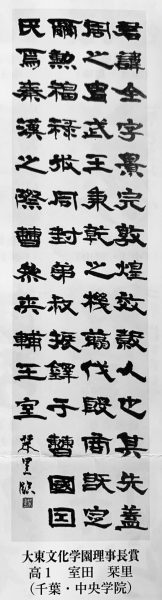 君諱全字景完敦煌效穀人也其先蓋
周之胄武王秉乾之機翦伐殷商既定
爾勲福祿攸同封弟叔振鐸于曹國因
氏焉秦漢之際曹參夾輔王室
栞里臨
大東文化学園理事長賞
高1 室田 栞里
(千葉・中央学院)